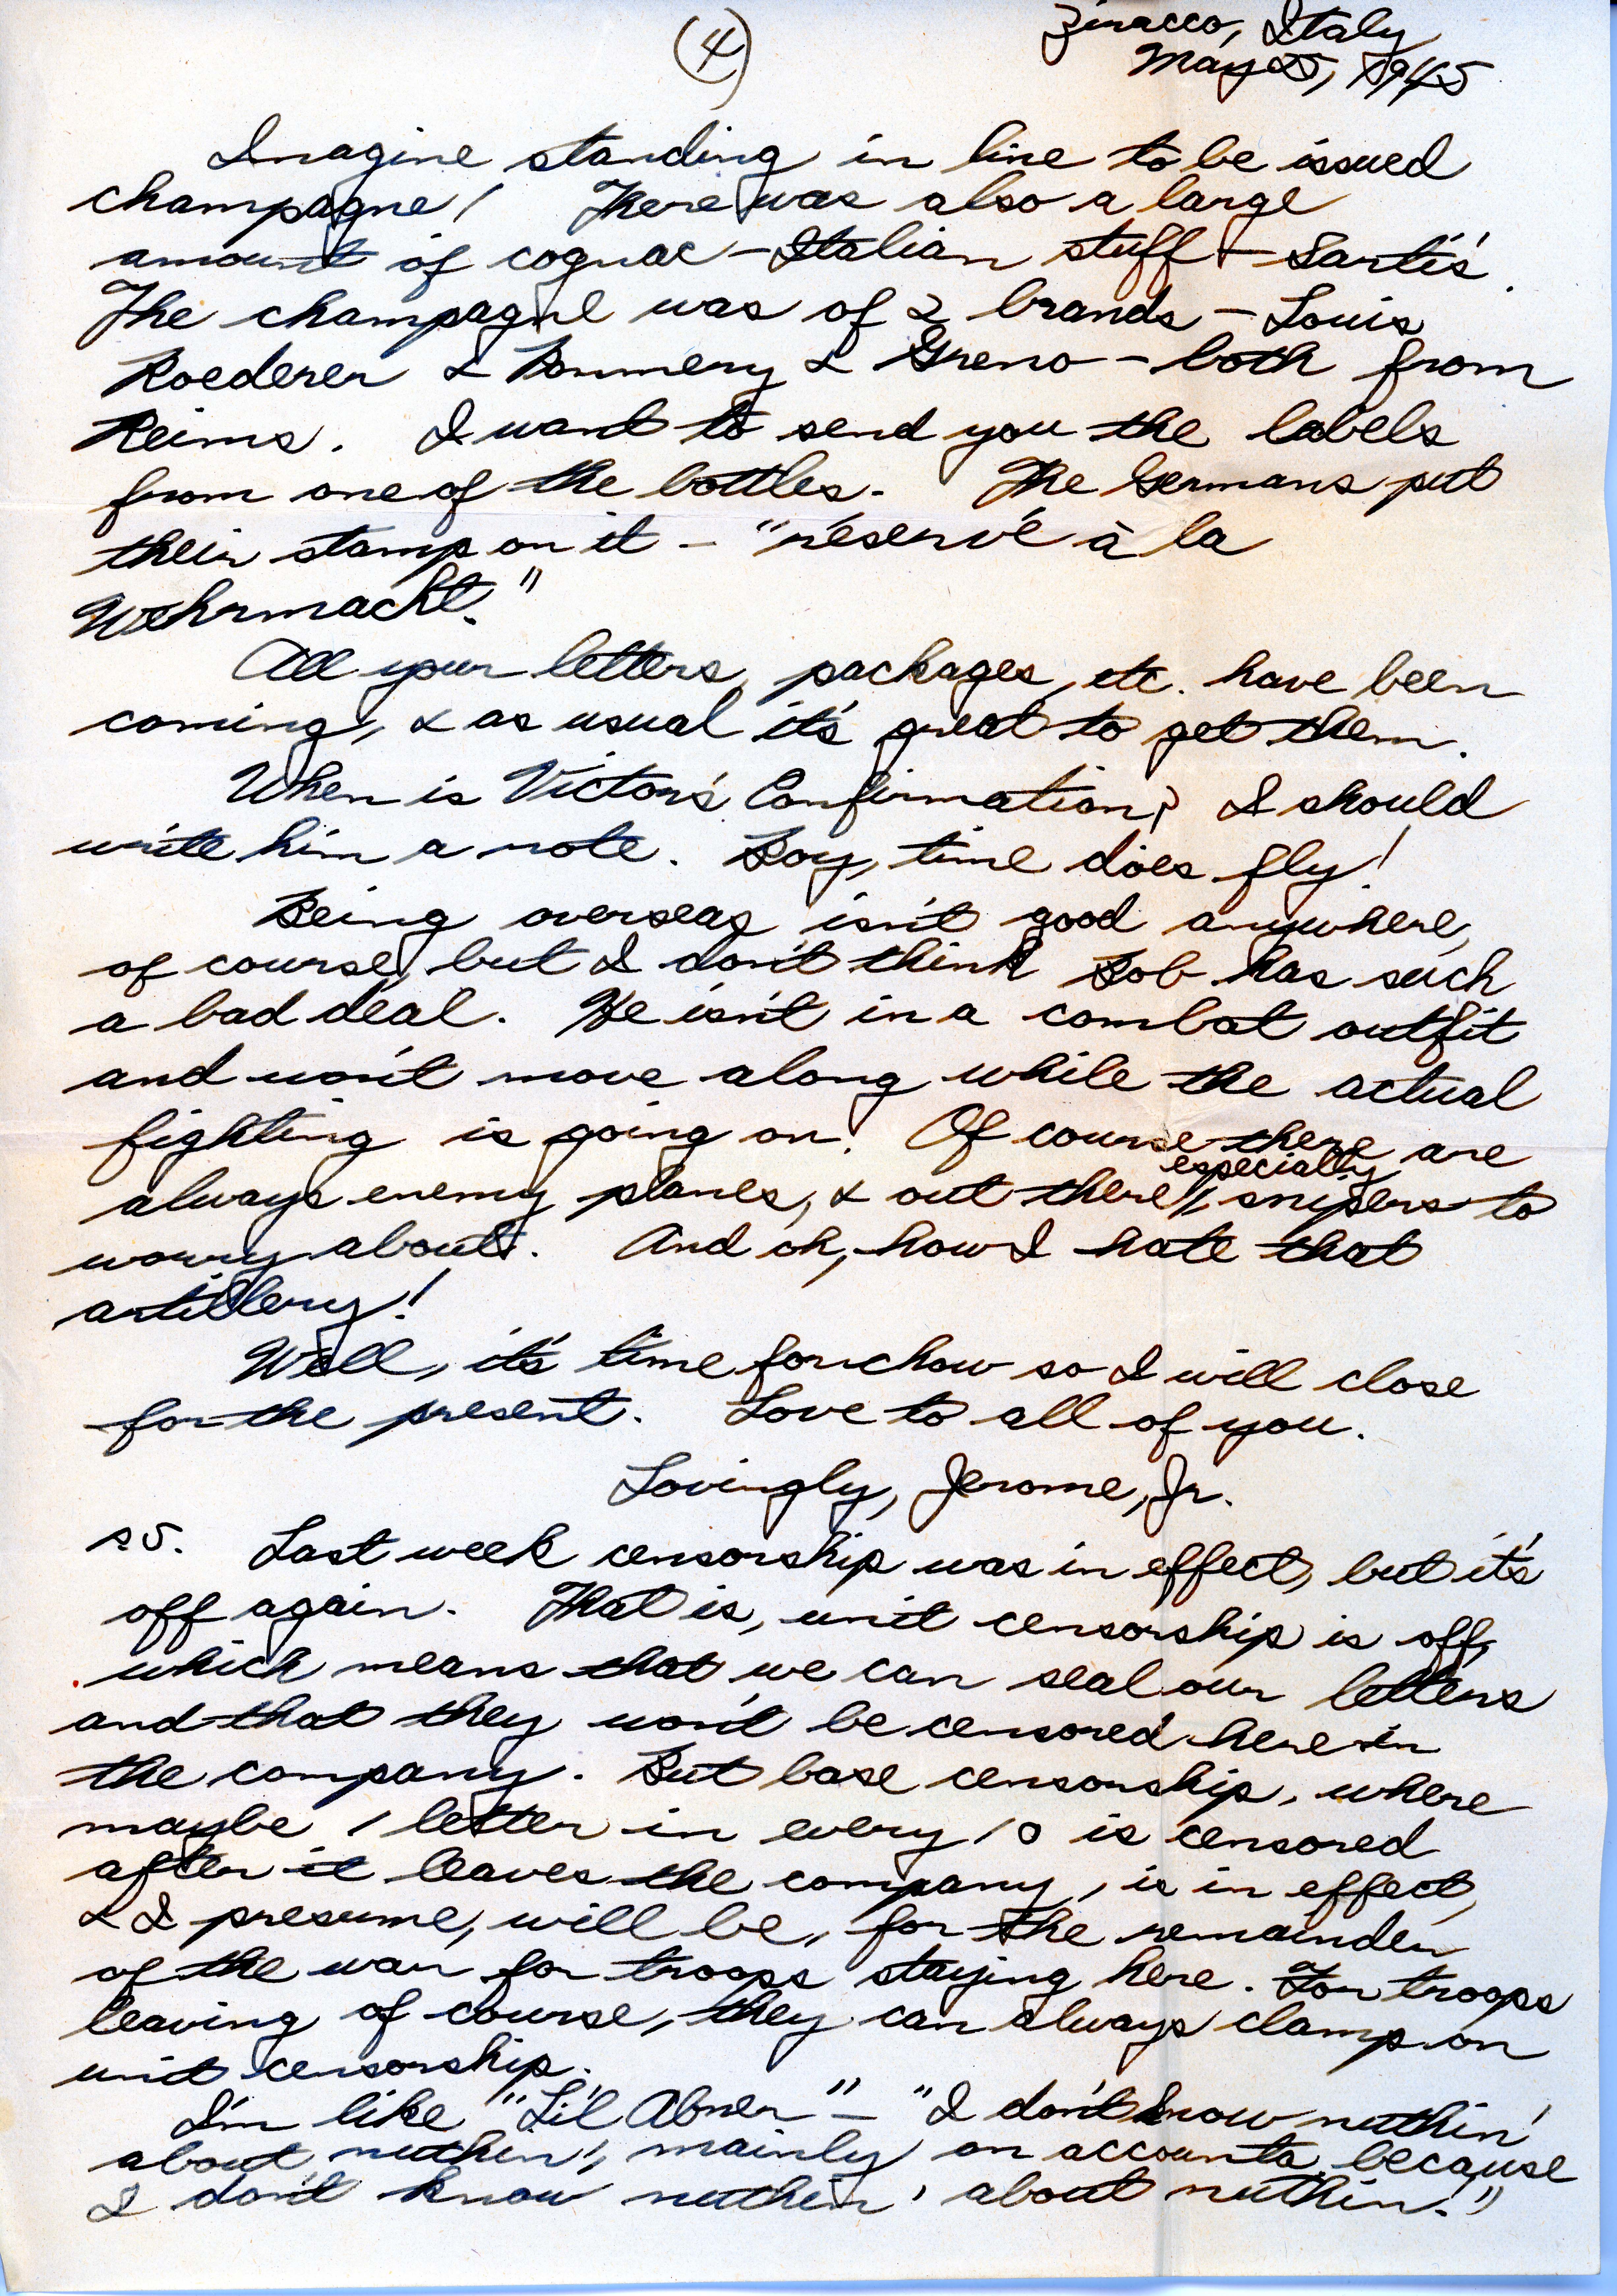 (4)
Ziracco, Italy
May 25, 1945
Imagine standing in line to be issued
champagne! There was also a large
amount of cognac – Italian stuff – Sarti's.
The champagne was of 2 brands – Louis
Roederer & Pommery & Greno – both from
Reims. I want to send you the labels
from one of the bottles. The Germans put
their stamp on it – "réservé à la
Wehrmacht."
All your letters, packages, etc. have been
coming, & as usual it's great to get them.
When is Victor's Confirmation? I should
write him a note. Boy, time does fly!
Being overseas isn't good anywhere,
of course, but I don't think Bob has such
a bad deal. He isn't in a combat outfit
and won't move along while the actual
fighting is going on. Of course there are
always enemy planes, & out there, especially, snipers to
worry about. And oh, how I hate that
artillery!
Well, it's time for chow so I will close
for the present. Love to all of you.
Lovingly, Jerome, Jr.
P.S. Last week censorship was in effect, but it's
off again. That is, unit censorship is off,
which means that we can seal our letters
and that they won't be censored here in
the company. But base censorship, where
maybe 1 letter in every 10 is censored
after it leaves the company, is in effect,
& I presume, will be, for the remainder
of the war for troops staying here. For troops
leaving of course, they can always clamp on
unit censorship.
I'm like "Li'l Abner" – "I don't know nuthin'
about nuthin', mainly on accounta because
I don't know nuthin' about nuthin."